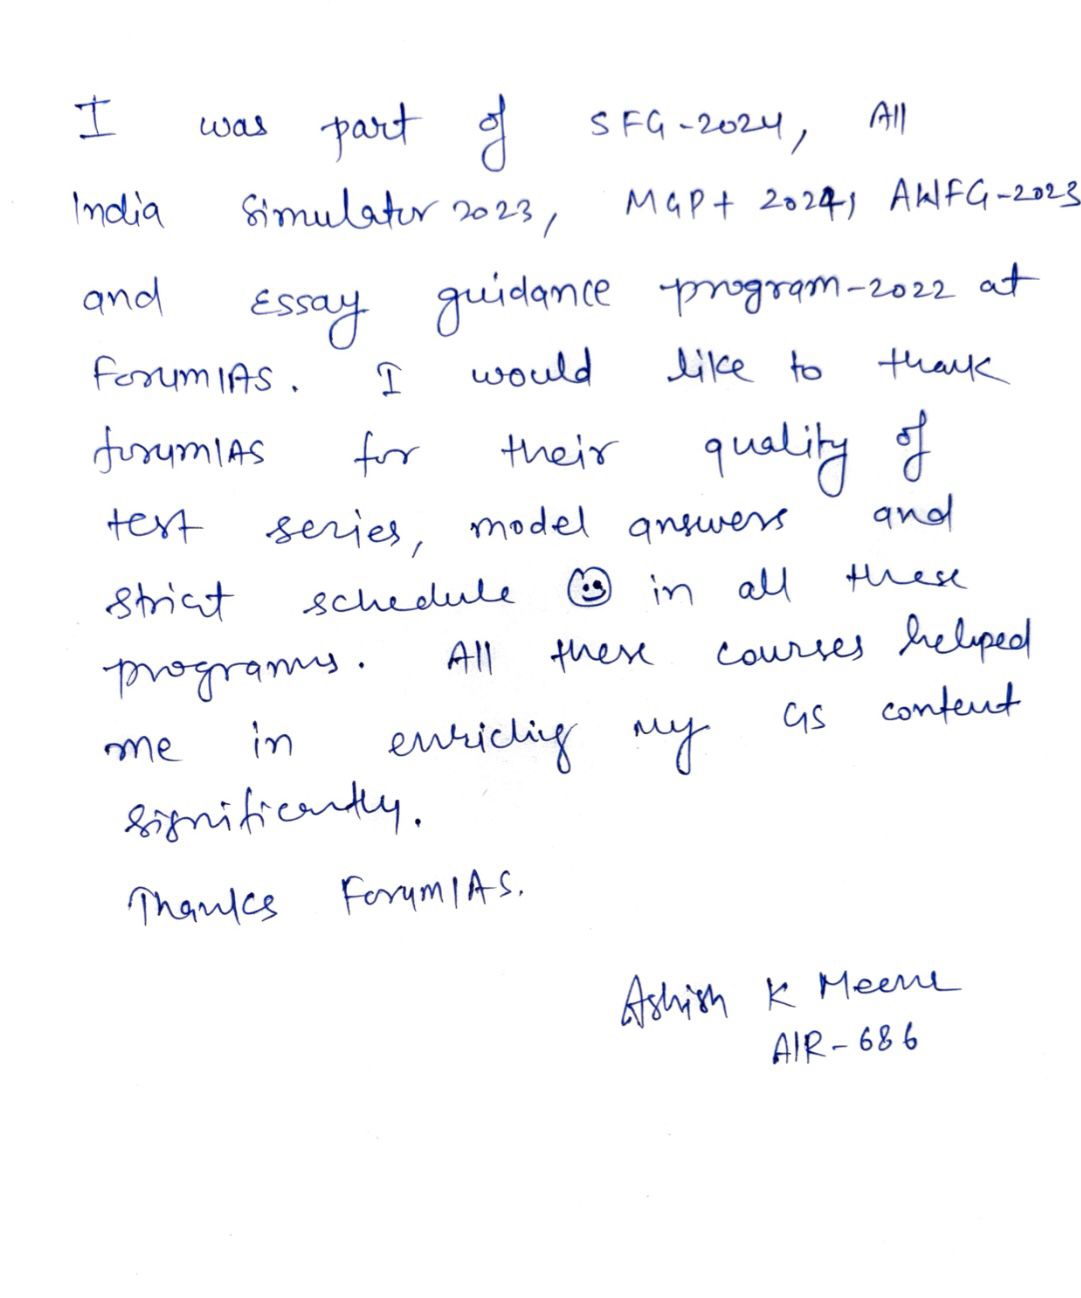 I was part of SFG-2024, All
India Simulator 2023, MGP+ 2024, AWFG-2023
and Essay guidance program-2022 at
ForumIAS. I would like to thank
forumIAS for their quality of
test series, model answers and
strict schedule 😊 in all these
programs. All these courses helped
me in enriching my GS content
significantly.
Thanks ForumIAS.
Ashish K Meena
AIR-686